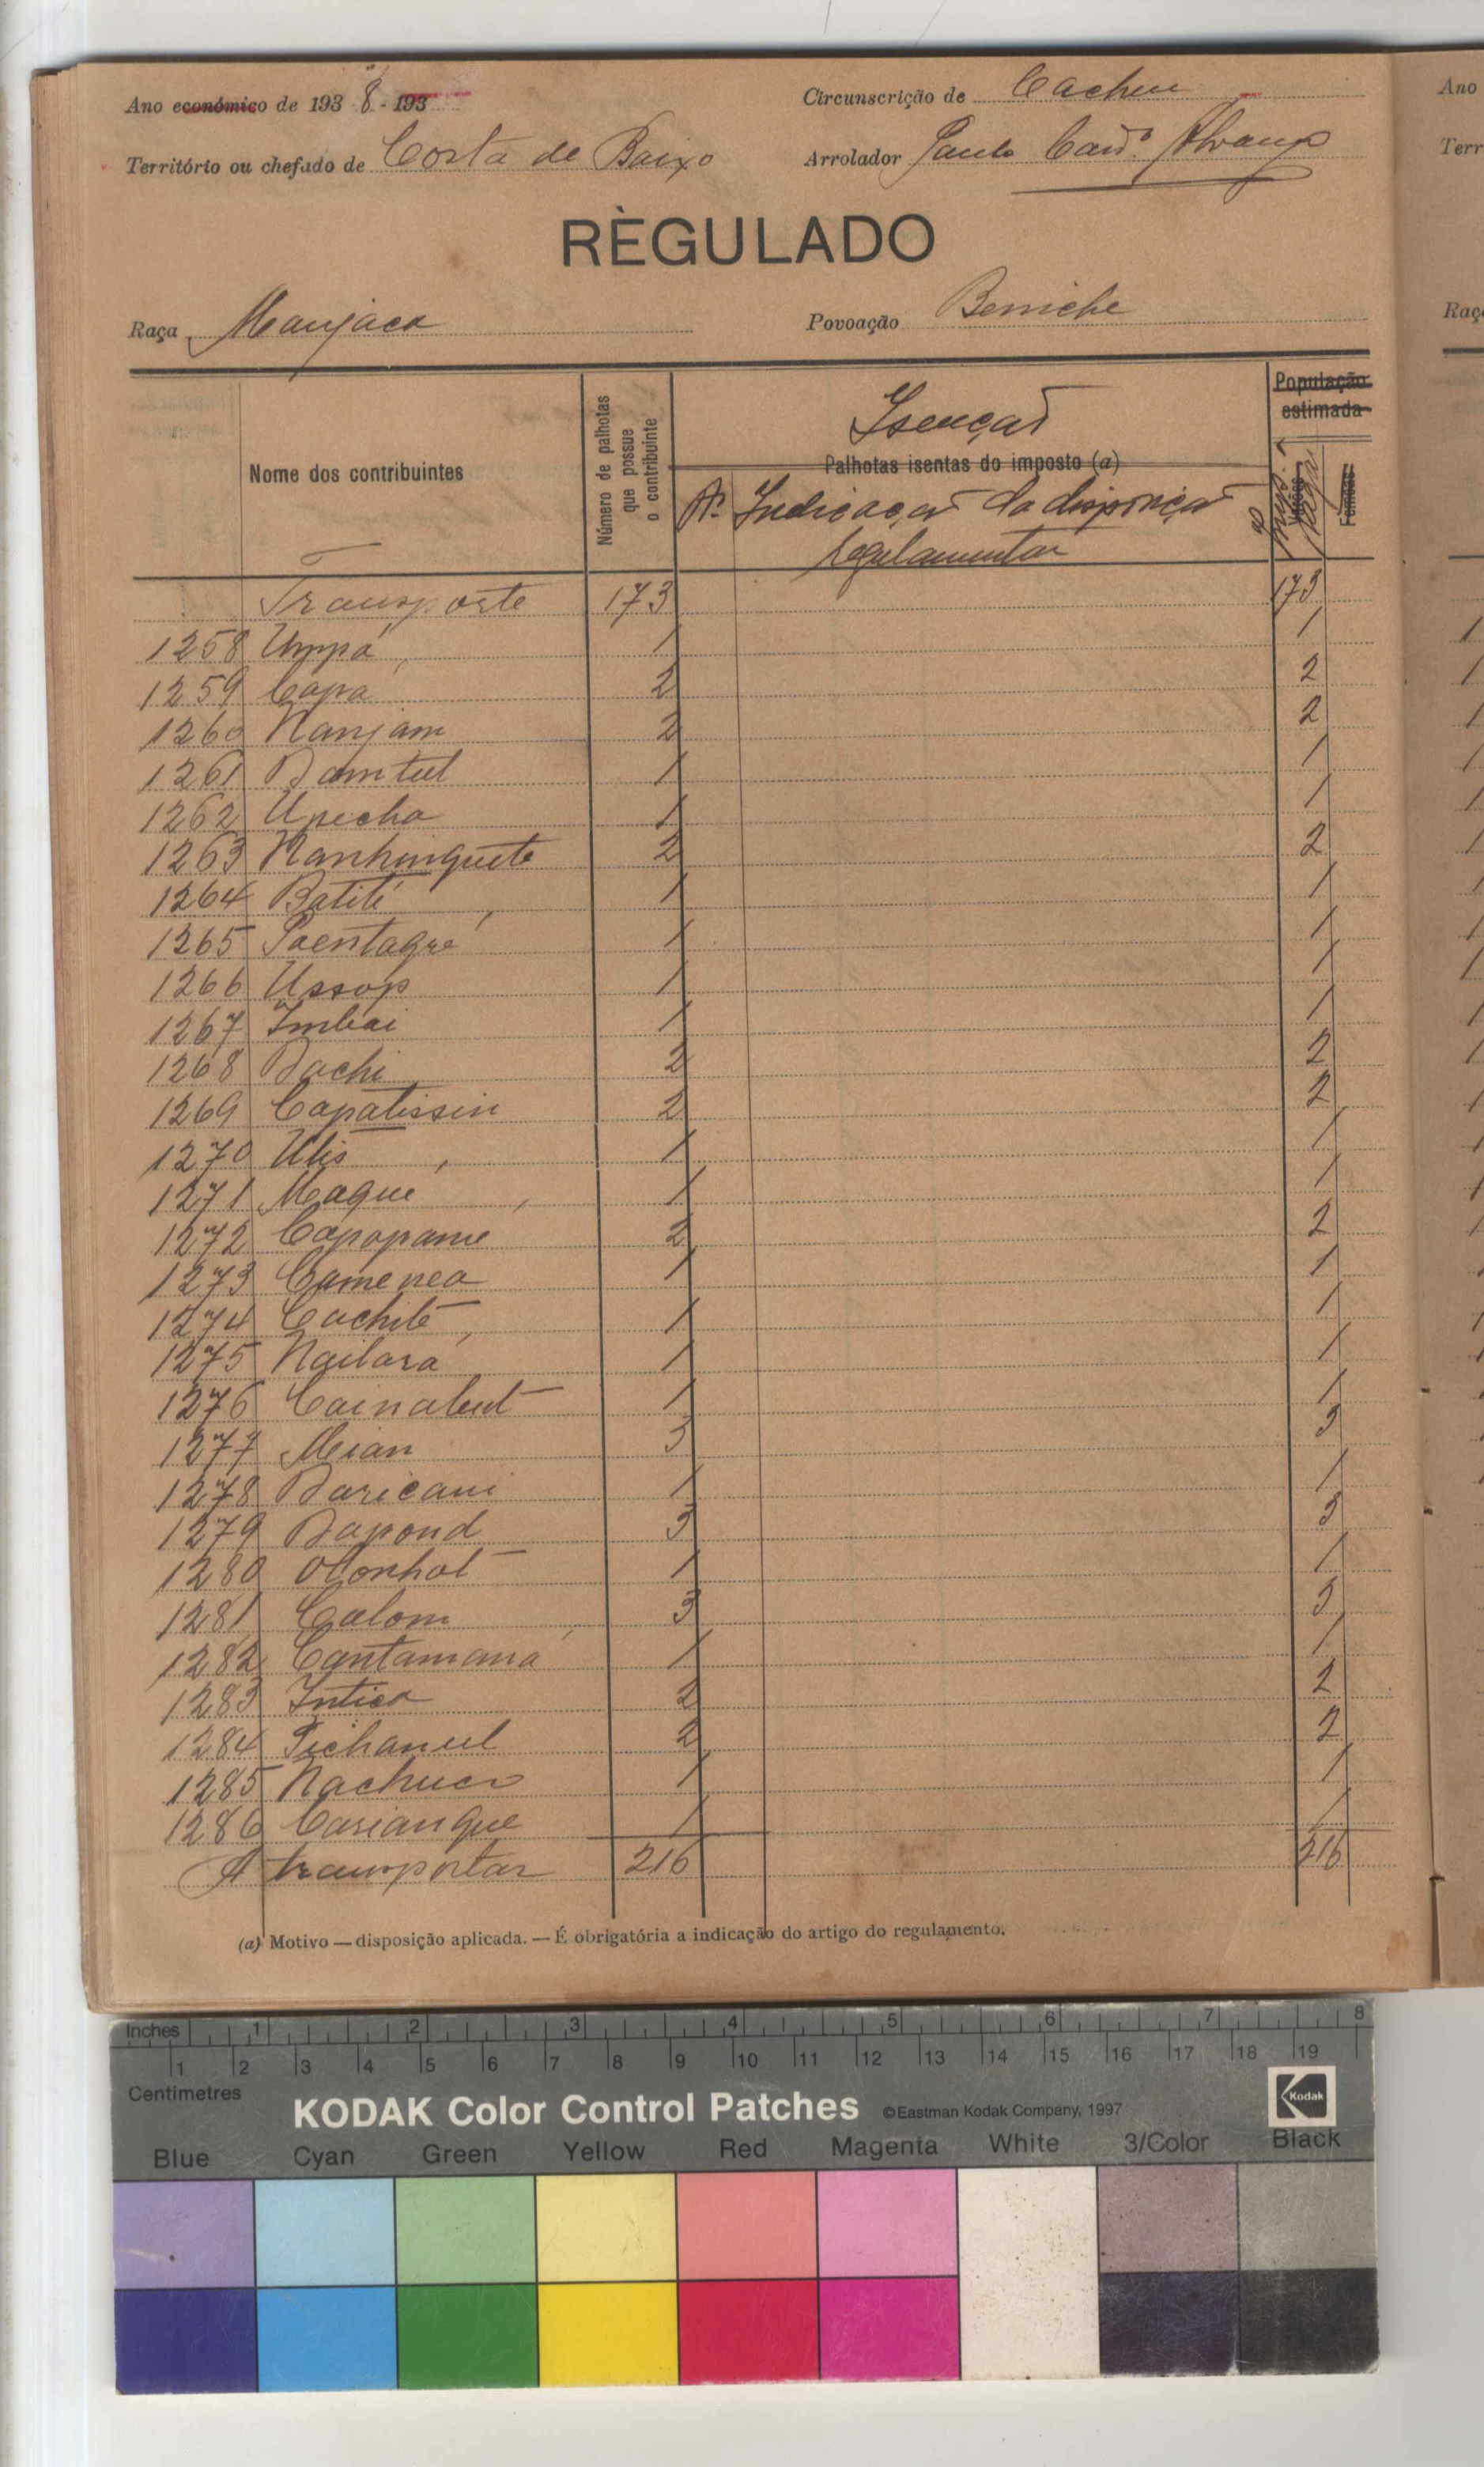 Ano económico de 1938-193
Circunscrição de Cacheu
Território ou chefado de Costa de Baixo
Arrolador Paulo Card.º Alvarez
RÈGULADO
Raça Manjaca
Povoação Beniche
Nome dos contribuintes
Número de palhotas que possue o contribuinte
Isenção
Palhotas isentas do imposto (a)
Nº Indicação da disposição regulamentar
População estimada
Fêmeas
Transporte 173 173
1258 Umpá 1 1
1259 Capá 2 2
1260 Nanjam 2 2
1261 Damtul 1 1
1262 Upecha 1 1
1263 Nanhinguete 2 2
1264 Batité 1 1
1265 Paentagué 1 1
1266 Ussop 1 1
1267 Imbai 1 1
1268 Dachi 2 2
1269 Capatissin 2 2
1270 Utis 1 1
1271 Maqué 1 1
1272 Capopame 2 2
1273 Camenea 1 1
1274 Cachite 1 1
1275 Nailará 1 1
1276 Cainabut 1 1
1277 Meian 3 3
1278 Daricani 1 1
1279 Dapond 3 3
1280 Olonhot 1 1
1281 Calom 3 3
1282 Cantamaná 1 1
1283 Intica 2 2
1284 Pichanul 2 2
1285 Nachuco 1 1
1286 Cariangue 1 1
A transportar 216 216
(a) Motivo — disposição aplicada. — É obrigatória a indicação do artigo do regulamento.
Ano
Terr
Raç
Inches 1 2 3 4 5 6 7 8
1 2 3 4 5 6 7 8 9 10 11 12 13 14 15 16 17 18 19
Centimetres
KODAK Color Control Patches ©Eastman Kodak Company, 1997 Kodak
Blue Cyan Green Yellow Red Magenta White 3/Color Black